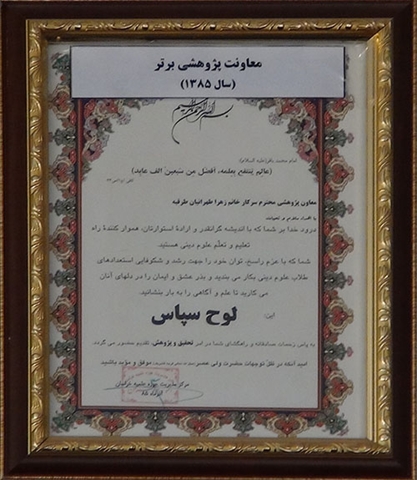 معاونت پژوهشی برتر
(سال ۱۳۸۵)
بسم الله الرحمن الرحیم
امام محمد باقر(علیه السلام)
(عالِم یُنتَفَع بِعلمه، افضَل مِن سَبعین الف عابد)
معاون پژوهشی محترم سرکار خانم زهرا طهرانیان طرقبه
با احترام
درود خدا بر شما که با اندیشه گرانقدر و ارادهٔ استوارتان، هموار کنندهٔ راه
تعلیم و تعلّم علوم دینی هستید.
شما که با عزم راسخ، توان خود را جهت رشد و شکوفایی استعدادهای
طلاب علوم دینی بکار می بندید و بذر عشق و ایمان را در دلهای آنان
می کارید تا علم و آگاهی را به بار بنشانید.
این
لوح سپاس
به پاس زحمات صادقانه و راهگشای شما در امر تحقیق و پژوهش، تقدیم حضور می گردد.
امید آنکه در ظل توجهات حضرت ولی عصر موفق و مؤید باشید.
مرکز مدیریت حوزه علمیه خراسان